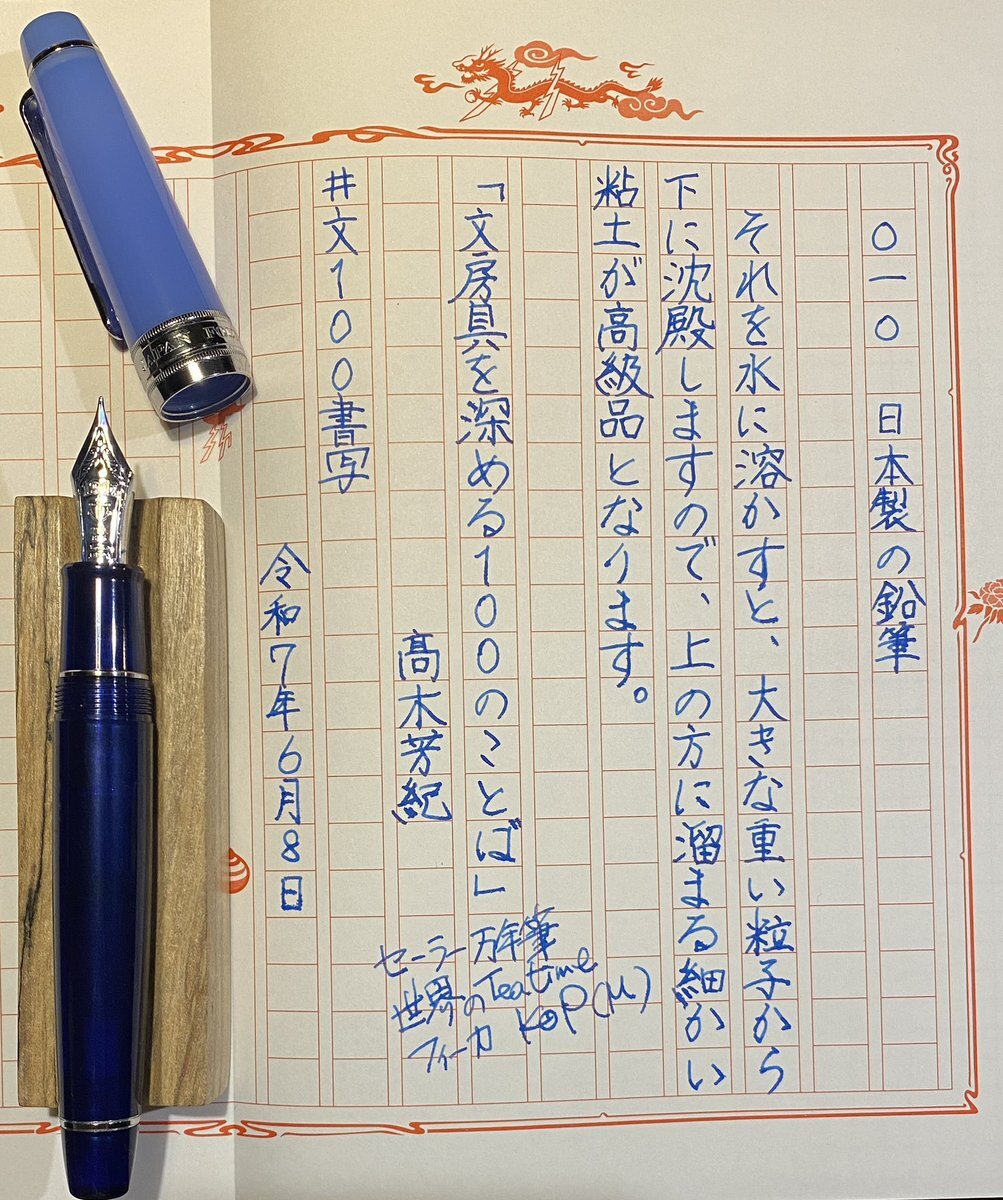 〇一〇 日本製の鉛筆
それを水に溶かすと、大きな重い粒子から
下に沈殿しますので、上の方に溜まる細かい
粘土が高級品となります。
「文房具を深める100のことば」
髙木芳紀
#文100書写
令和7年6月8日
セーラー万年筆
世界のTeatime
フィーカ KOP(M)
JAPAN FO